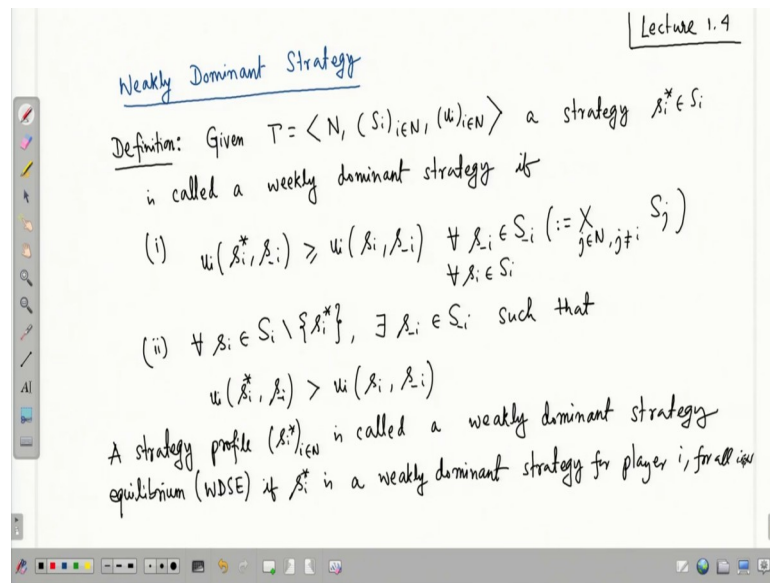 Lecture 1.4
Weakly Dominant Strategy
Definition: Given Γ = < N, (Si)i∈N, (ui)i∈N > a strategy si* ∈ Si
is called a weekly dominant strategy if
(i) ui(si*, s-i) ⩾ ui(si, s-i) ∀ s-i ∈ S-i (:= X j∈N, j≠i Sj)
∀ si ∈ Si
(ii) ∀ si ∈ Si \ {si*}, ∃ s-i ∈ S-i such that
ui(si*, s-i) > ui(si, s-i)
A strategy profile (si*)i∈N is called a weakly dominant strategy
equilibrium (WDSE) if si* is a weakly dominant strategy for player i, for all i∈N